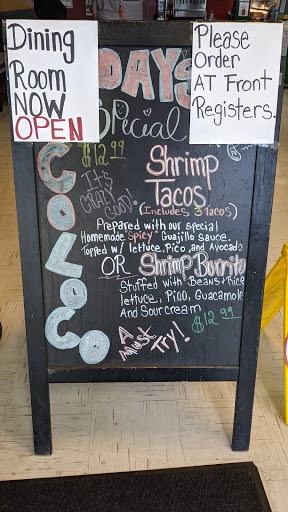 Dining
Room
NOW
OPEN
Please
Order
AT Front
Registers.
DAYS
Special
COLOLOCO
$12.99
IT'S
CRAZY
GOOD!
Shrimp
Tacos
(Includes 3 tacos)
Prepared with our special
Homemade spicy Guajillo sauce.
Topped w/ lettuce, Pico, and Avocado
OR Shrimp Burrito
Stuffed with Beans + Rice
lettuce, Pico, Guacamole
And Sour cream
$12.99
A
Must
Try!